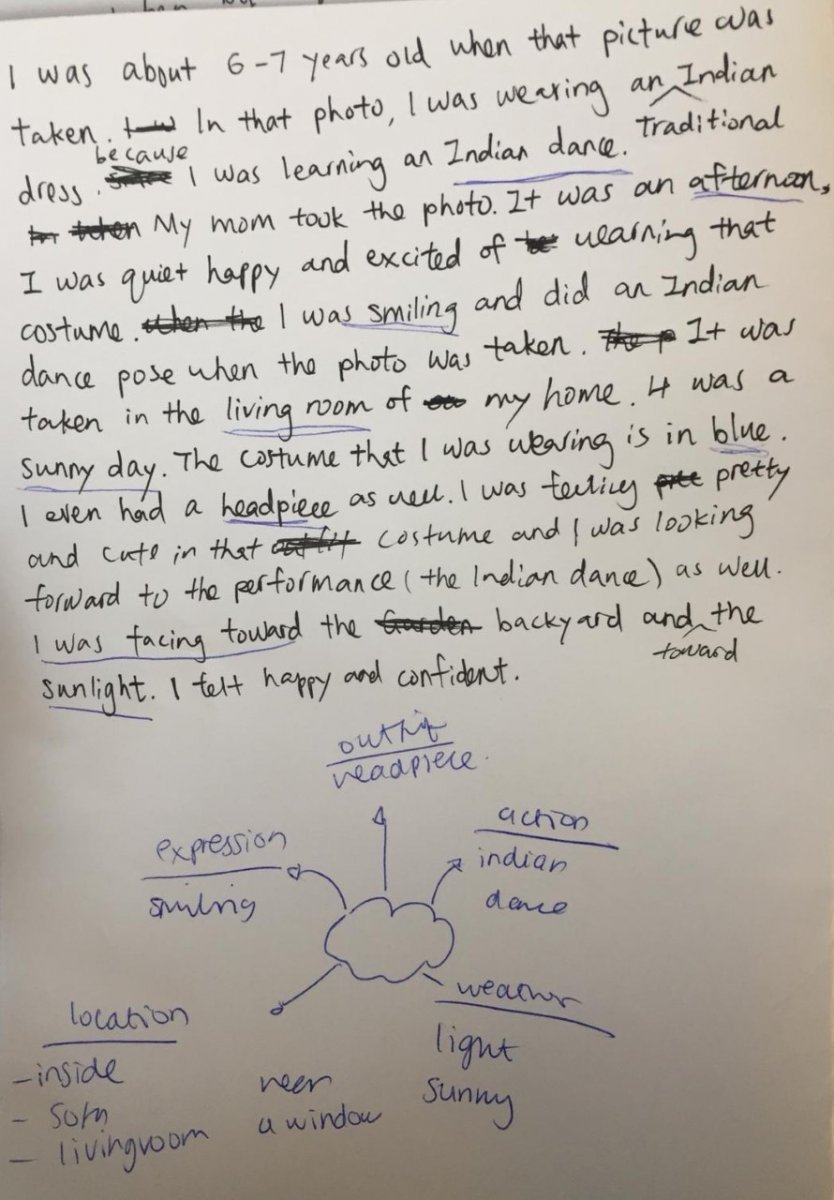 I was about 6-7 years old when that picture was
taken. In that photo, I was wearing an Indian
Traditional
because
dress. I was learning an Indian dance.
My mom took the photo. It was an afternoon,
I was quiet happy and excited of wearning that
costume. I was smiling and did an Indian
dance pose when the photo was taken. It was
taken in the living room of my home. It was a
sunny day. The costume that I was wearing is in blue.
I even had a headpiece as well. I was feeling pretty
and cute in that costume and I was looking
forward to the performance (the Indian dance) as well.
I was facing toward the backyard and the
toward
sunlight. I felt happy and confident.
outfit
headpiece.
expression
smiling
action
indian
dance
weather
light
sunny
location
- inside
- sofa
- livingroom
neer
a window